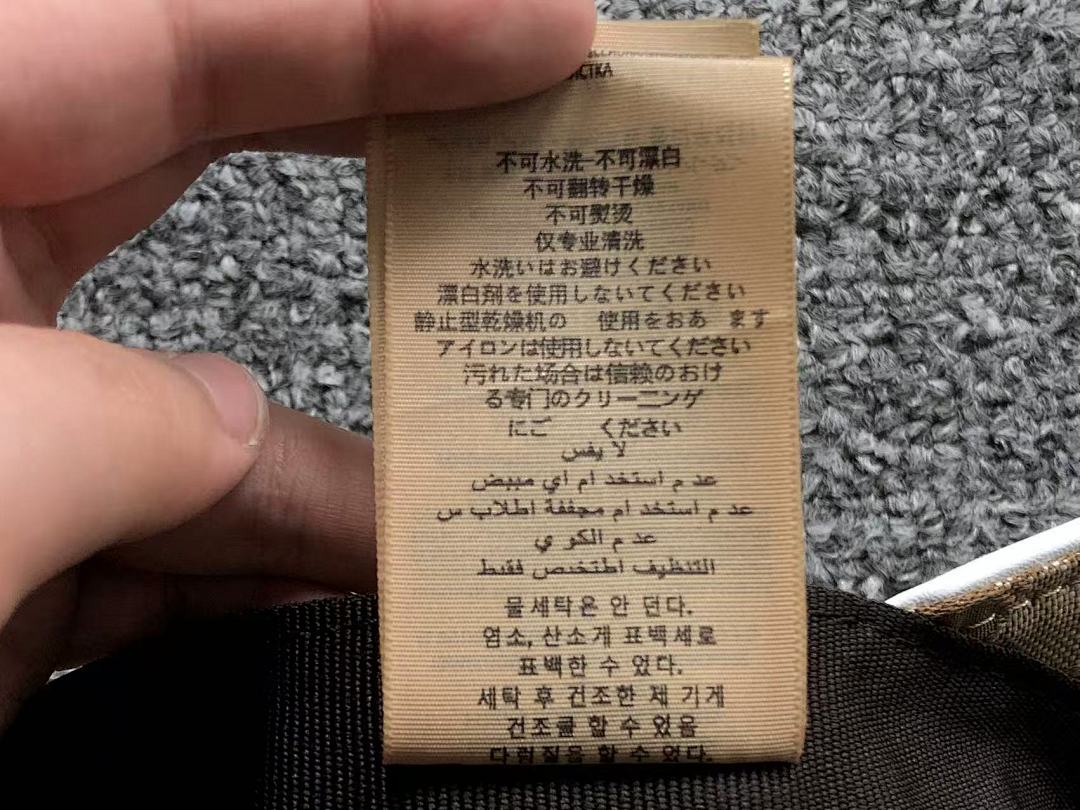 ИСТКА
不可水洗-不可漂白
不可翻转干燥
不可熨烫
仅专业清洗
水洗いはお避けください
漂白剤を使用しないてください
静止型乾燥机の 使用をおあ ます
アイロンは使用しないてください
汚れた場合は信赖のおけ
る专门のクリーニンゲ
にご ください
لا يفس
عد م استخد ام اي مبيض
عد م استخد ام مجففة اطلاب س
عد م الكو ي
التنظيف اطتخيص فقيط
물세탁은 안 던다.
염소, 산소개 표백세로
표백한 수 었다.
세탁 후 건조한 제 기게
건조클 할 수 있을
다림질음 할 수 었다.